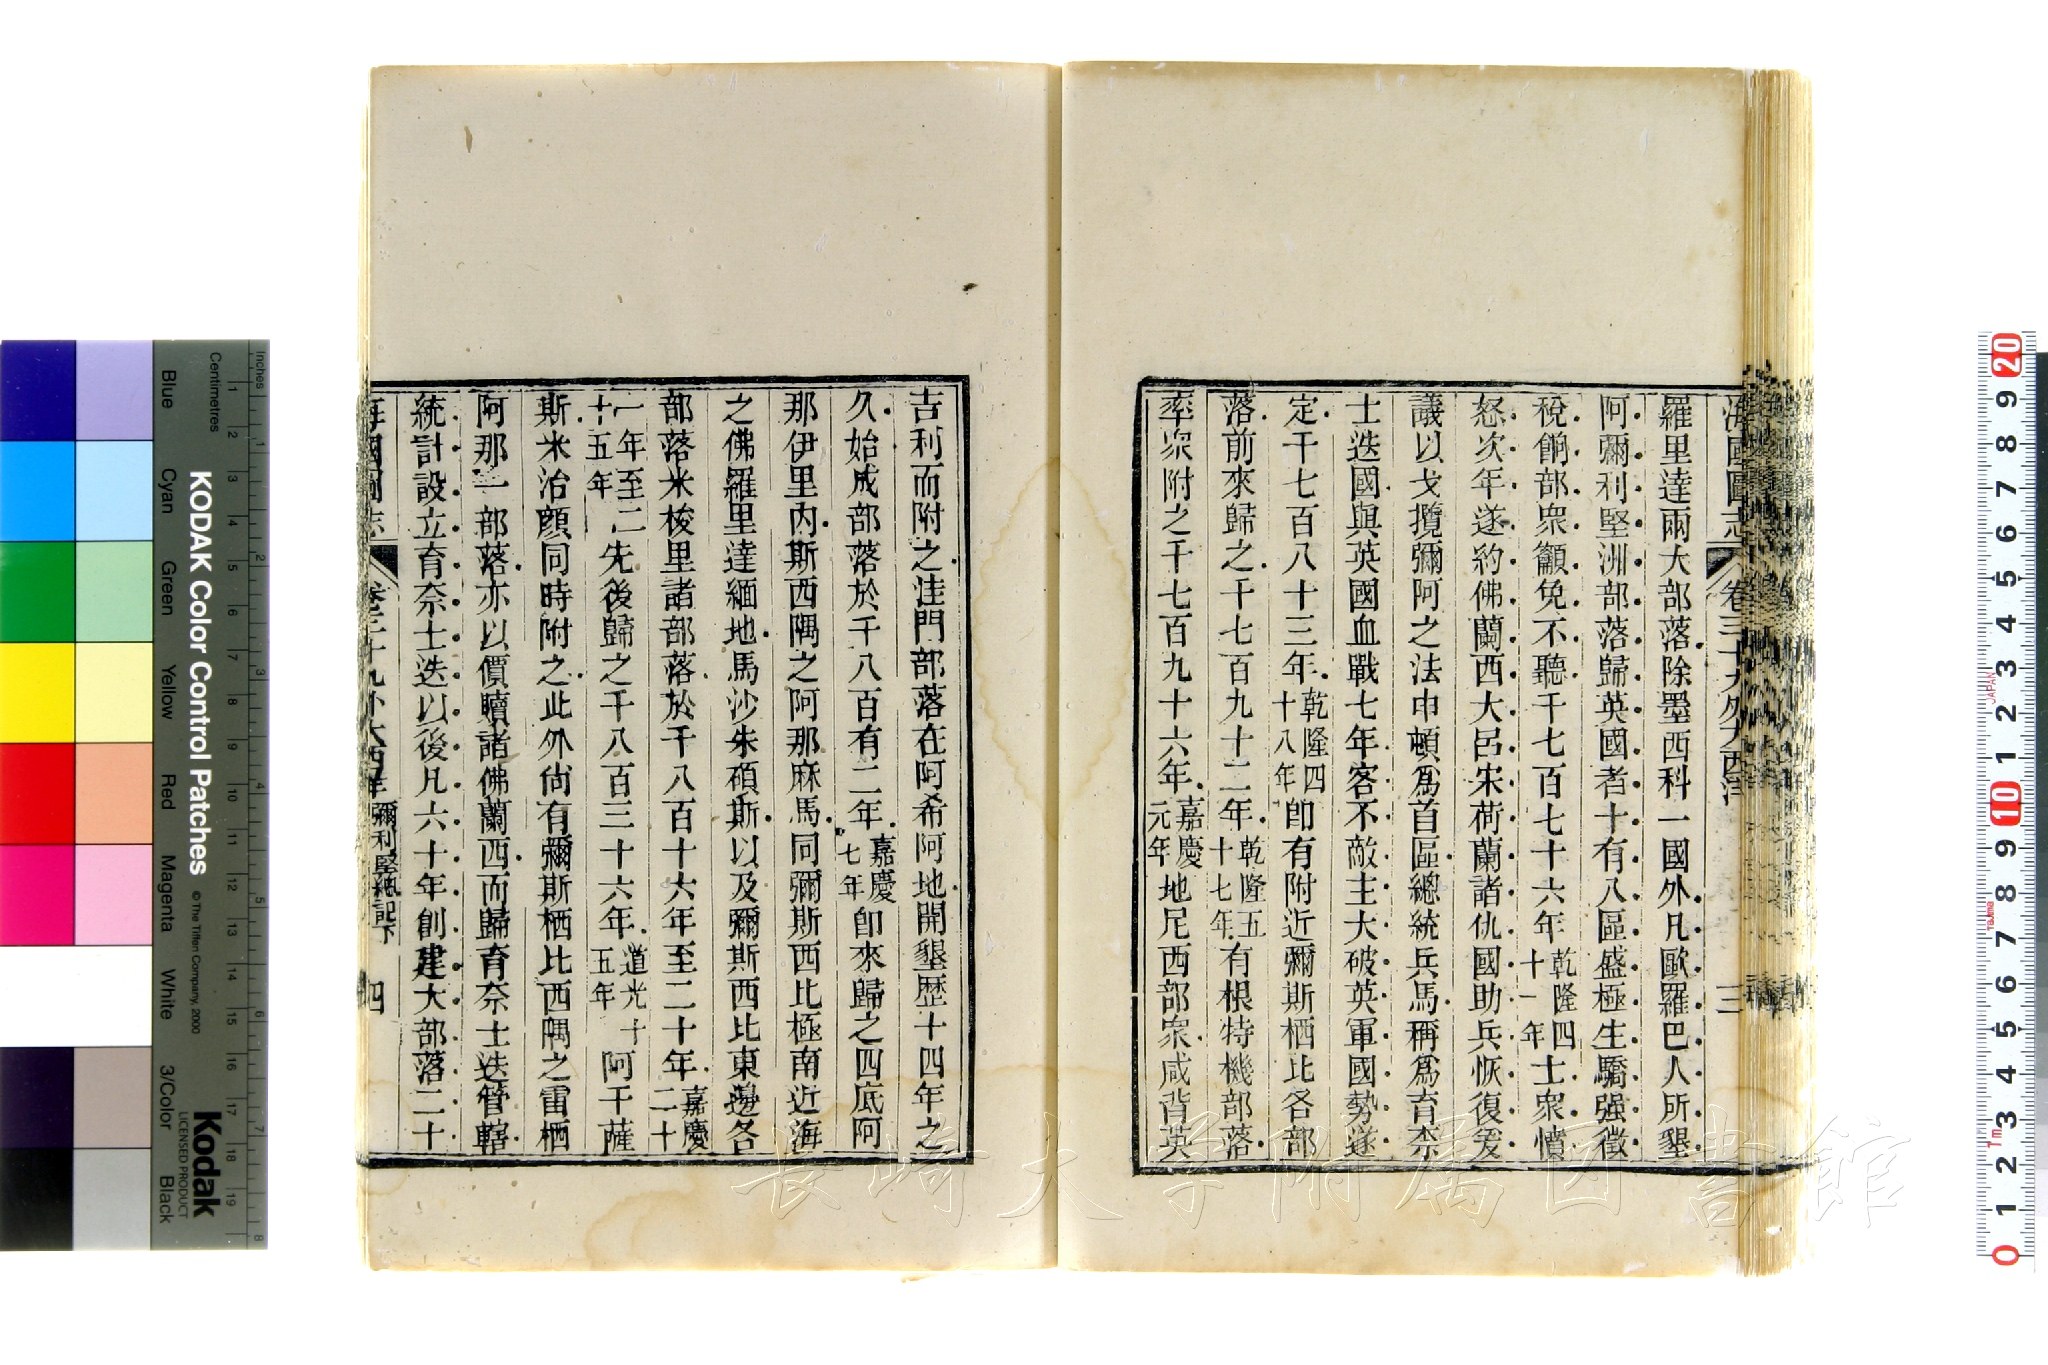 海國圖志 卷三十九外大西洋 三
羅里達兩大部落除墨西科一國外凡歐羅巴人所墾
阿彌利堅洲部落歸英國者十有八區盛極生驕强徵
稅餉部衆籲免不聽千七百七十六年乾隆四十一年士衆憤
怒次年遂約佛蘭西大呂宋荷蘭諸仇國助兵恢復爰
議以戈攬彌阿之法申頓爲首區總統兵馬稱爲育奈
士迭國與英國血戰七年客不敵主大破英軍國勢遂
定千七百八十三年乾隆四十八年卽有附近彌斯栖比各部
落前來歸之千七百九十二年乾隆五十七年有根特機部落
率衆附之千七百九十六年嘉慶元年地尼西部衆咸背英
吉利而附之洼門部落在阿希阿地開墾歷十四年之
久始成部落於千八百有二年嘉慶七年卽來歸之四底阿
那伊里內斯西隅之阿那麻馬同彌斯西比極南近海
之佛羅里達緬地馬沙朱碩斯以及彌斯西比東邊各
部落米梭里諸部落於千八百十六年至二十年嘉慶二十
一年至二十五年先後歸之千八百三十六年道光十五年阿干薩
斯米治顔同時附之此外尙有彌斯栖比西隅之雷栖
阿那一部落亦以價贖諸佛蘭西而歸育奈士迭管轄
統計設立育奈士迭以後凡六十年創建大部落二十
海國圖志 卷三十九外大西洋彌利堅總記下 四
長崎大学附属図書館
KODAK Color Control Patches
© The Tiffen Company, 2000
Kodak
LICENSED PRODUCT
Blue Cyan Green Yellow Red Magenta White 3/Color Black
Centimetres
Inches
1 2 3 4 5 6 7 8 9 10 11 12 13 14 15 16 17 18 19
1 2 3 4 5 6 7 8
20 9 8 7 6 5 4 3 2 1 10 9 8 7 6 5 4 3 2 1 0
JAPAN